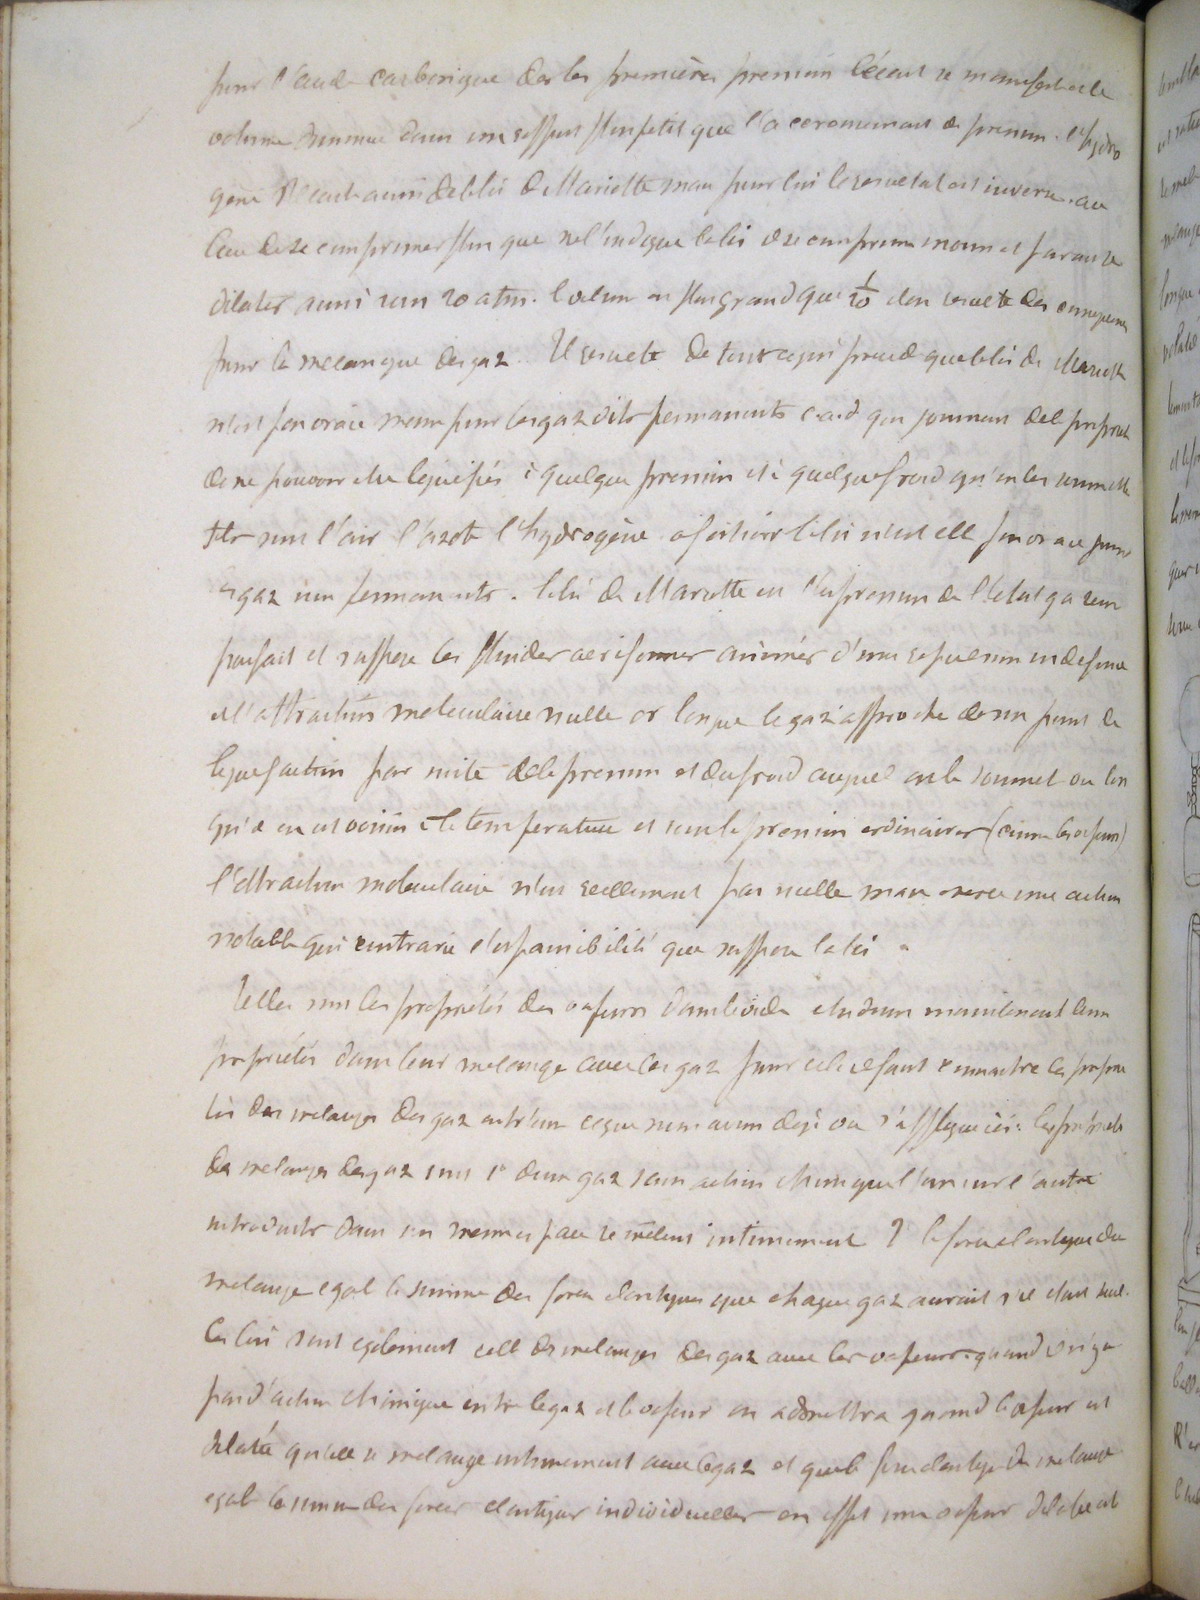 pour l'acide carbonique dès les premières pression l'écart se manifeste et le
volume diminue dans un rapport plus petit que l'accroissement de pression. l'hydro
gène s'écarte aussi de la loi de Mariotte mais pour lui le resultat est inverse. au
lieu de se comprimer plus que ne l'indique la loi il se comprime moins et parait se
dilater ainsi sous 20 atm. le volume est plus grand que 1/20 il en resulte des
pour le melange des gaz. Il resulte de tout ce qui precede que la loi de Mariotte
n'est pas vraie meme pour les gaz dits permanents c.a.d qui jouissent de la propriété
de ne pouvoir etre liquefiés à quelque pression et à quelque froid qu'on les soumette
tels sont l'air l'azote l'hydrogène a fortiori la loi n'est elle pas vraie pour
les gaz non permanents. la loi de Mariotte est l'expression de l'état gazeux
parfait et suppose les fluides aeriformes animés d'une repulsion indefinie
et l'attraction moleculaire nulle or lorsque le gaz s'approche de son point de
liquefaction par suite de la pression et du froid auquel on le soumet ou lors
qu'il en est voisin à la temperature et sous la pression ordinaires (comme les vapeurs)
l'attraction moleculaire n'est reellement pas nulle mais exerce une action
notable qui contrarie l'expansibilité que suppose la loi.
Telles sont les propriétés des vapeurs dans le vide etudions maintenant leurs
propriétés dans leur melange avec les gaz pour cela il faut connaitre les proprie
tés des melanges des gaz entr'eux ce que nous avons deja vu s'applique ici: les propriétés
des melanges des gaz sont 1° deux gaz sans action chimique l'un sur l'autre
introduits dans un meme espace se mêlent intimement 2 la force elastique du
melange egale la somme des forces elastiques que chaque gaz aurait s'il etait seul.
Ces lois sont egalement celle des melanges des gaz avec les vapeurs. quand il n'y a
pas d'action chimique entre le gaz et la vapeur on admettra quand la vapeur est
dilatée qu'elle se melange intimement avec le gaz et que la force elastique du melange
egale la somme des forces elastiques individuelles en effet une vapeur dilatée est